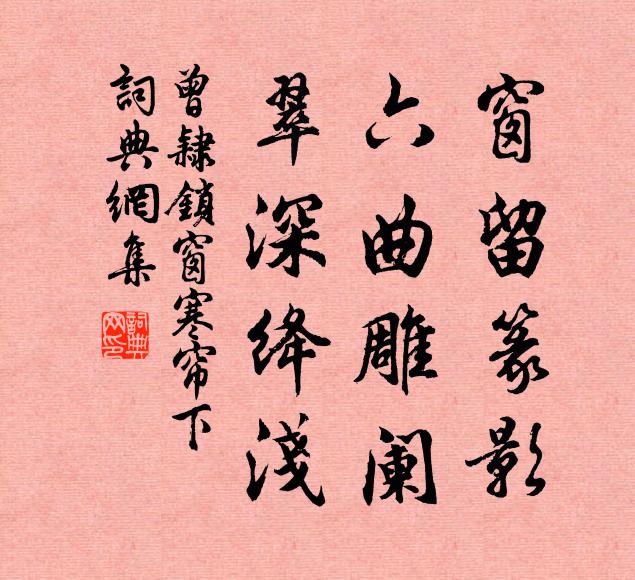 窗留篆影
六曲雕阑
翠深绛淺
曾隸鎖窗寒帘下
詞典網集
詞典
网印